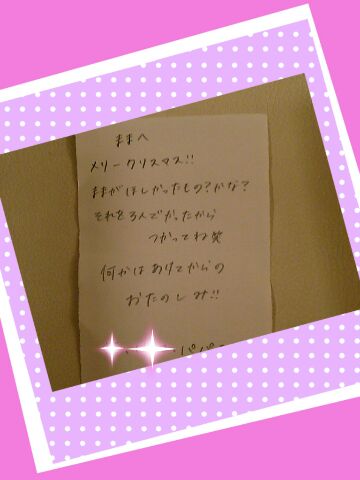 ままへ
メリークリスマス!!
ままがほしかったもの?かな?
それを3人でかったから
つかってね笑
何かはあけてからの
おたのしみ!!
パパ